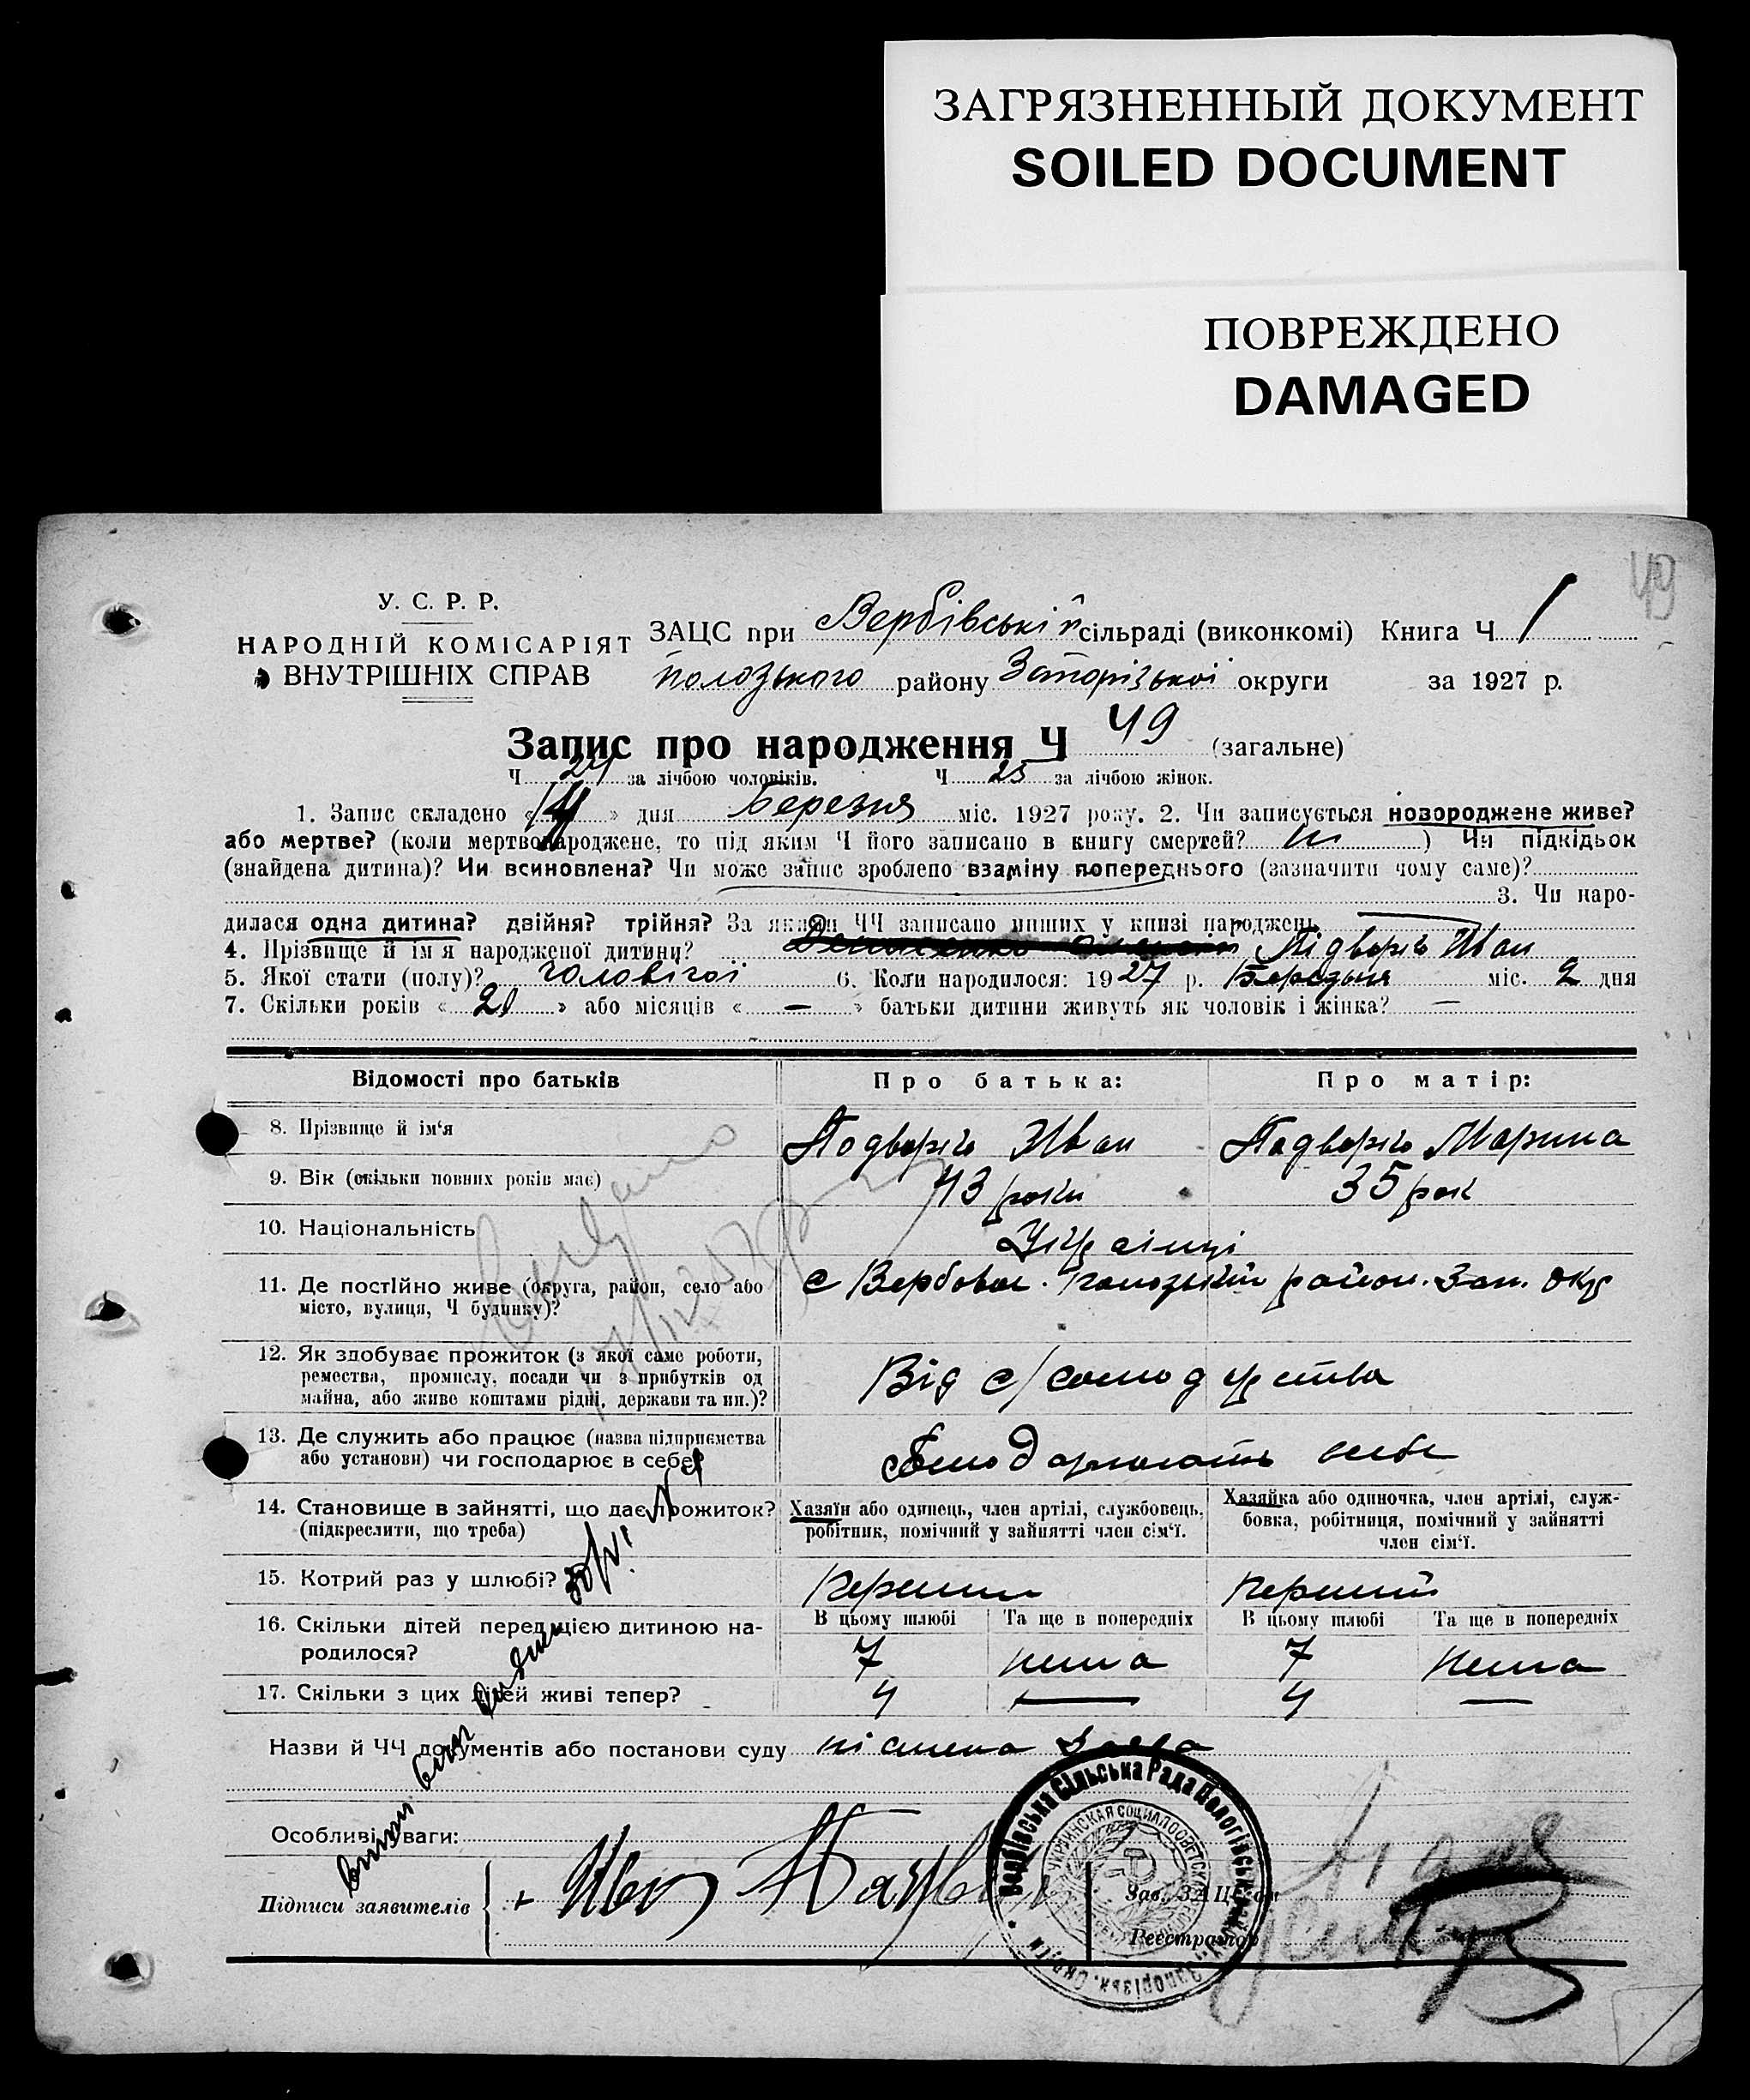 ЗАГРЯЗНЕННЫЙ ДОКУМЕНТ
SOILED DOCUMENT
ПОВРЕЖДЕНО
DAMAGED
49
У. С. Р. Р.
НАРОДНІЙ КОМІСАРІЯТ
ВНУТРІШНІХ СПРАВ
ЗАЦС при Вербівській сільраді (виконкомі) Книга Ч. 1
полозького району Запорізької округи за 1927 р.
Запис про народження Ч 49 (загальне)
Ч 24 за лічбою чоловіків. Ч 25 за лічбою жінок.
1. Запис складено « 14 » дня березня міс. 1927 року. 2. Чи записується новороджене живе?
або мертве? (коли мертвонароджене, то під яким Ч його записано в книгу смертей? ) Чи підкідьок
(знайдена дитина)? Чи всиновлена? Чи може запис зроблено взаміну попереднього (зазначити чому саме)?
3. Чи наро-
дилася одна дитина? двійня? трійня? За якими ЧЧ записано инших у книзі народжень
4. Прізвище й ім'я народженої дитини? Підворіз Іван
5. Якої стати (полу)? чоловічої 6. Коли народилося: 1927 р. Березня міс. 2 дня
7. Скільки років « 20 » або місяців « — » батьки дитини живуть як чоловік і жінка? —
Відомості про батьків Про батька: Про матір:
8. Прізвище й ім‘я Іван Марина
9. Вік (скільки повних років має) 43 роки 35 рок
10. Національність Українці
11. Де постійно живе (округа, район, село або
місто, вулиця, Ч будинку)? с Вербове. район. Зап. окр
12. Як здобуває прожиток (з якої саме роботи,
ремества, промислу, посади чи з прибутків од
майна, або живе коштами рідні, держави та ин.)? Від с/
13. Де служить або працює (назва підприємства
або установи) чи господарює в себе?
14. Становище в зайнятті, що дає прожиток?
(підкреслити, що треба)
Хазяїн або одинець, член артілі, службовець,
робітник, помічний у зайнятті член сім‘ї.
Хазяйка або одиночка, член артілі, служ-
бовка, робітниця, помічний у зайнятті
член сім‘ї.
15. Котрий раз у шлюбі? Перший перший
16. Скільки дітей перед цією дитиною на-
родилося?
В цьому шлюбі Та ще в попередніх В цьому шлюбі Та ще в попередніх
7 нема 7 нема
17. Скільки з цих дітей живі тепер? 4 — 4 —
Назви й ЧЧ документів або постанови суду
Особливі уваги:
Підписи заявителів + Іван
Зав. ЗАЦС'ом
Реєстратор
Вербівська Сільська Рада Пологівськ. Району Запорізьк. Округи